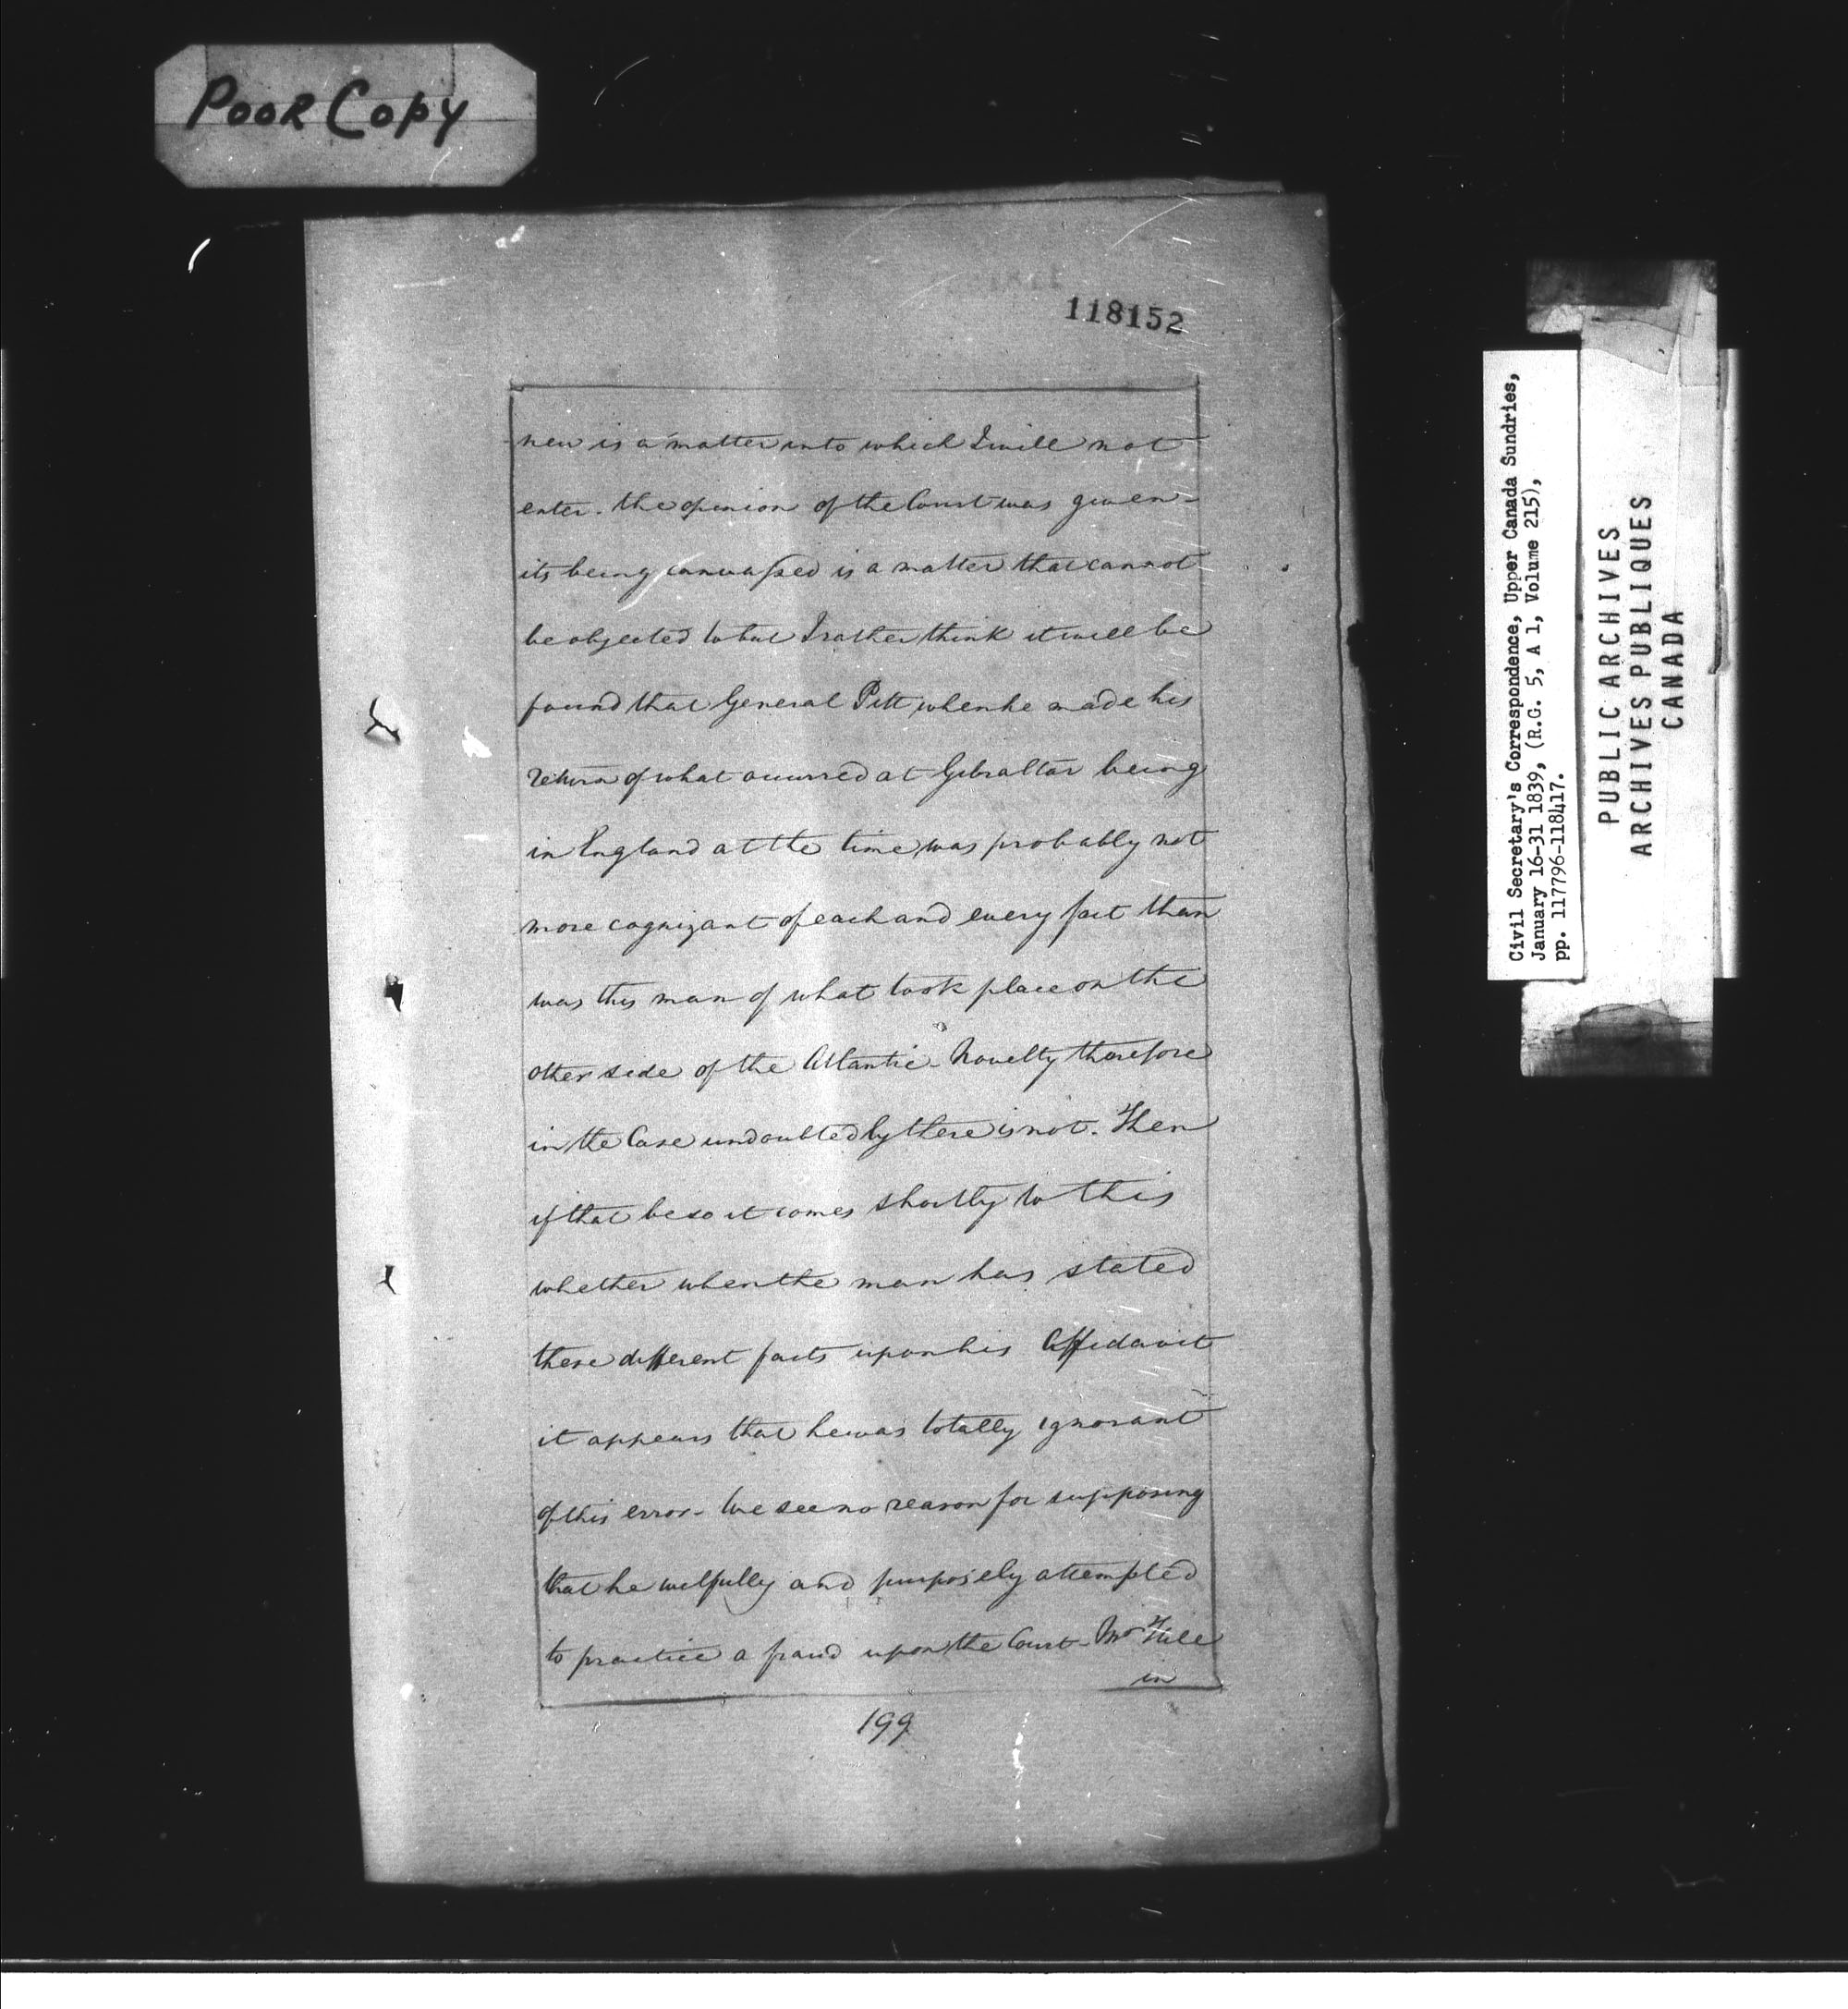 Poor Copy
118152
new is a matter into which I will not
enter. the opinion of the Court was given -
its being canvassed is a matter that cannot
be objected to but I rather think it will be
found that General Pitt when he made his
return of what occurred at Gibraltar being
in England at the time, was probably not
more cognizant of each and every fact than
was this man of what took place on the
other side of the Atlantic - Novelty therefore
in the Case undoubtedly there is not. Then
if that be so it comes shortly to this
whether when the man has stated
these different facts upon his Affidavit
it appears that he was totally ignorant
of this error - We see no reason for supposing
that he wilfully and purposely attempted
to practice a fraud upon the Court - Mr Hill
in
199
Civil Secretary's Correspondence, Upper Canada Sundries,
January 16-31 1839, (R.G. 5, A 1, Volume 215),
pp. 117796-118417.
PUBLIC ARCHIVES
ARCHIVES PUBLIQUES
CANADA